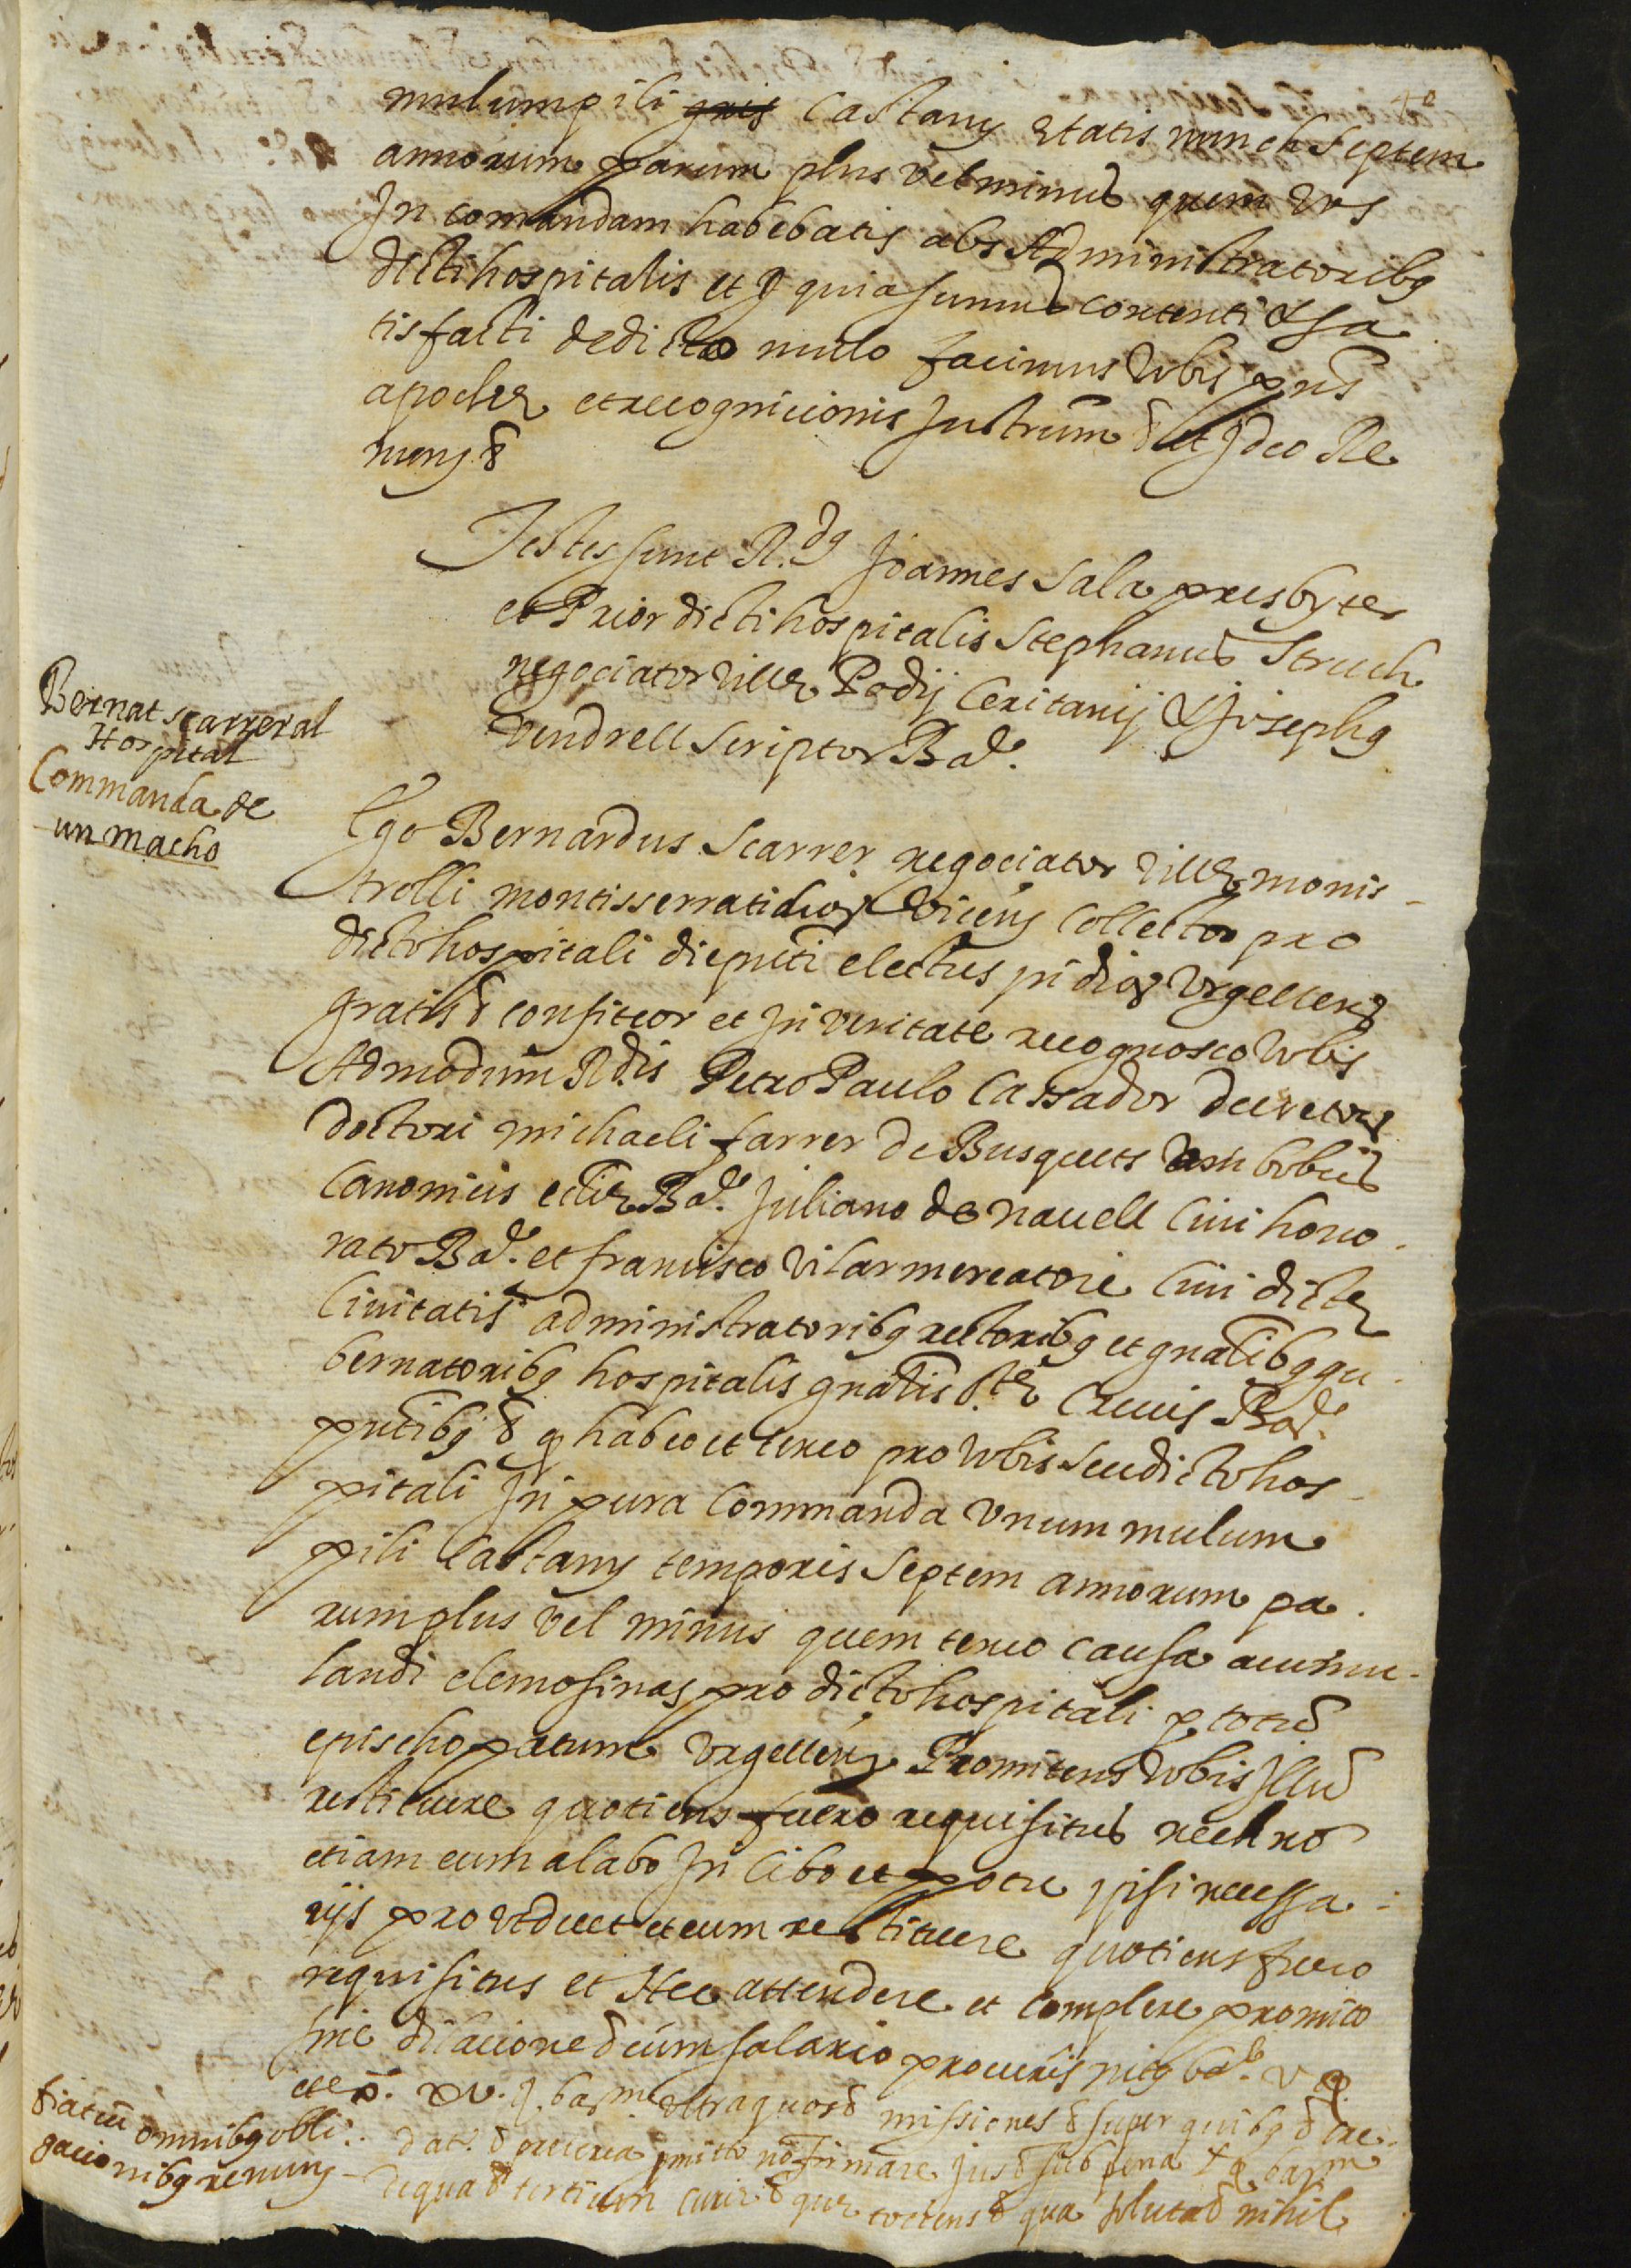 mulum pili gris Castany etatis nunch septem
annorum parum plus vel minus quem vos
In comandam habebatis abs Administratoribus
dicti hospitalis et quia sumus contenti & sa
tisfacti de dicto mulo facimus vobis pns
apocher et recognicionis Instrum & et Ideo Re
nuny &
Testes sunt R.dus Joannes Sala presbyter
et Prior dicti hospitalis Stephanus Struch
negociator ville Podij Ceritanij & Josephus
vendrell scriptor Bar.
Bernat scarrer al
Hospital
Commanda de
un macho
Ego Bernardus Scarrer negociator ville monis-
trolli montisserrati dioc Vicen Collector pro
dicto hospitali electus in dioc Urgellen
gratis & confiteor et in veritate recognosco vobis
Admodum Rdis Petro Paulo Cassador decretor
doctori michaeli farrer de Busquets ambobus
Canonicis ecclie Bar. Juliano de navell Civi hono-
rato Bar. et francisco Vilar mercatore Civi dicte
Civitatis administratoribus rectoribus et gnalibus gu-
bernatoribus hospitalis gnalis Ste Crucis Bar.
pntibus & q habeo et teneo pro vobis seu dicto hos-
pitali In pura Commanda unum mulum
pili Castany temporis septem annorum pa-
rum plus vel minus quem teneo causa acumu-
landi elemosinas pro dicto hospitali p totu
epischopatum Urgellen Promitens vobis Illud
restituere quotiens fuero requisitus nech no
etiam eum alabo In Cibo et potu ipsi necessa-
rijs provideret et eum restituere quotiens fuero
requisitus et Hec attendere et complere promitto
sine dilacione & cum salario procuris
ultra quos & missiones & super quibus & cre-
dat. & pmitto no firmare Jus & sub pena
de qua & tertium curie & que tociens & qua soluta & nihil
fiat cu omnibus obli-
gacionibus renuny